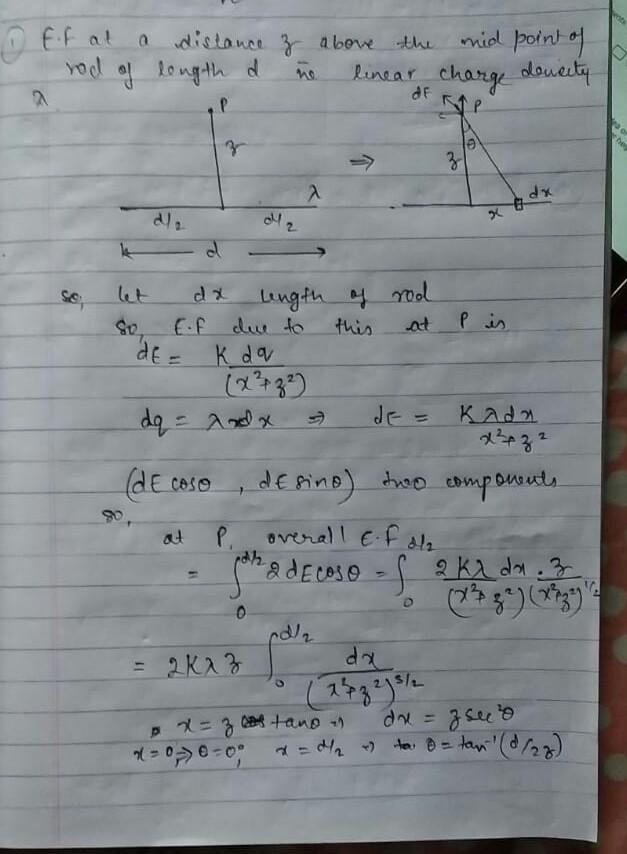 ① E.F at a distance z above the mid point of
rod of length d n̄e linear charge density
λ
P
z
λ
d/2
d/2
d
⇒
dE
P
θ
z
x
dx
so, let dx length of rod
So, E.F due to this at P is
dE = K dq / (x²+z²)
dq = λ dx ⇒ dE = Kλdx / x²+z²
(dE cosθ , dE sinθ) two components
so,
at P, overall E.F
= ∫₀^d/2 2dE cosθ = ∫₀^d/2 2Kλ dx . z / (x²+z²)(x²+z²)^1/2
= 2Kλz ∫₀^d/2 dx / (x²+z²)^3/2
x = z tanθ ⇒ dx = z sec²θ
x=0 ⇒ θ=0°, x = d/2 ⇒ θ = tan⁻¹(d/2z)